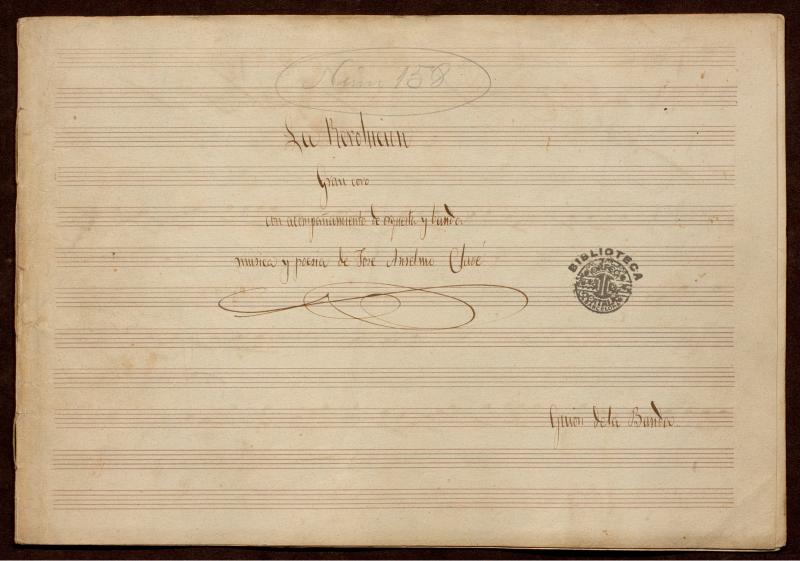 Núm 158
La Revolución
Gran coro
con acompañamiento de orquesta y banda.
musica y poesia de Jose Anselmo Clavé
BIBLIOTECA
BARCELONA
Guion de la Banda.